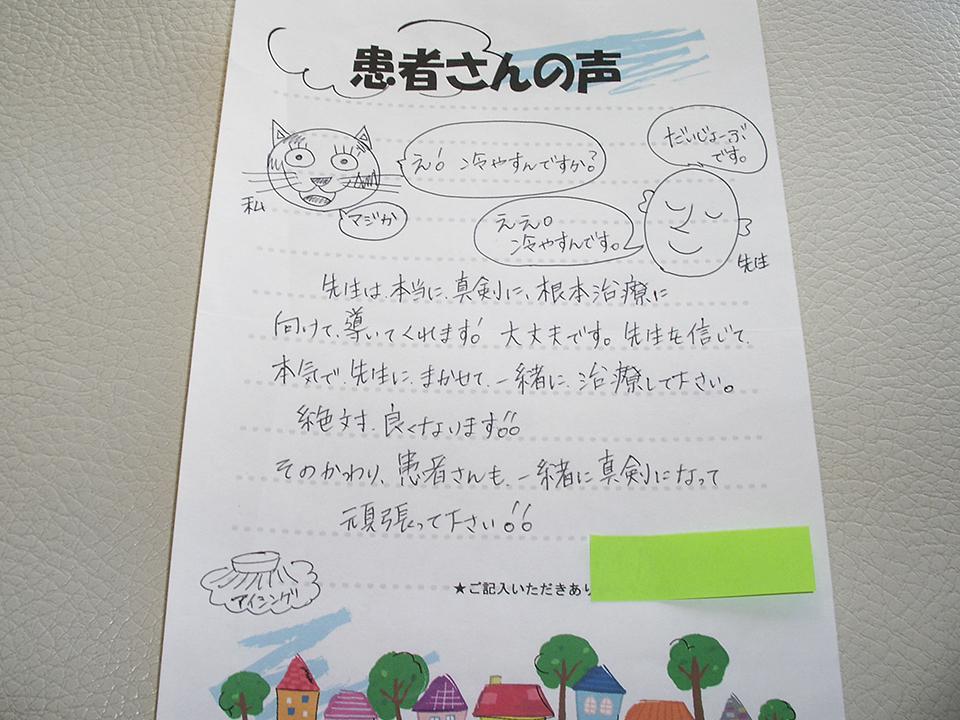 患者さんの声
え! 冷やすんですか?
だいじょーぶ
です。
私
マジか
ええ。
冷やすんです。
先生
先生は、本当に、真剣に、根本治療に
向けて、導いてくれます! 大丈夫です。先生を信じて、
本気で、先生に、まかせて、一緒に、治療して下さい。
絶対、良くないます!!
そのかわり、患者さんも、一緒に真剣になって
頑張って下さい!!
アイシング
★ご記入いただきあり